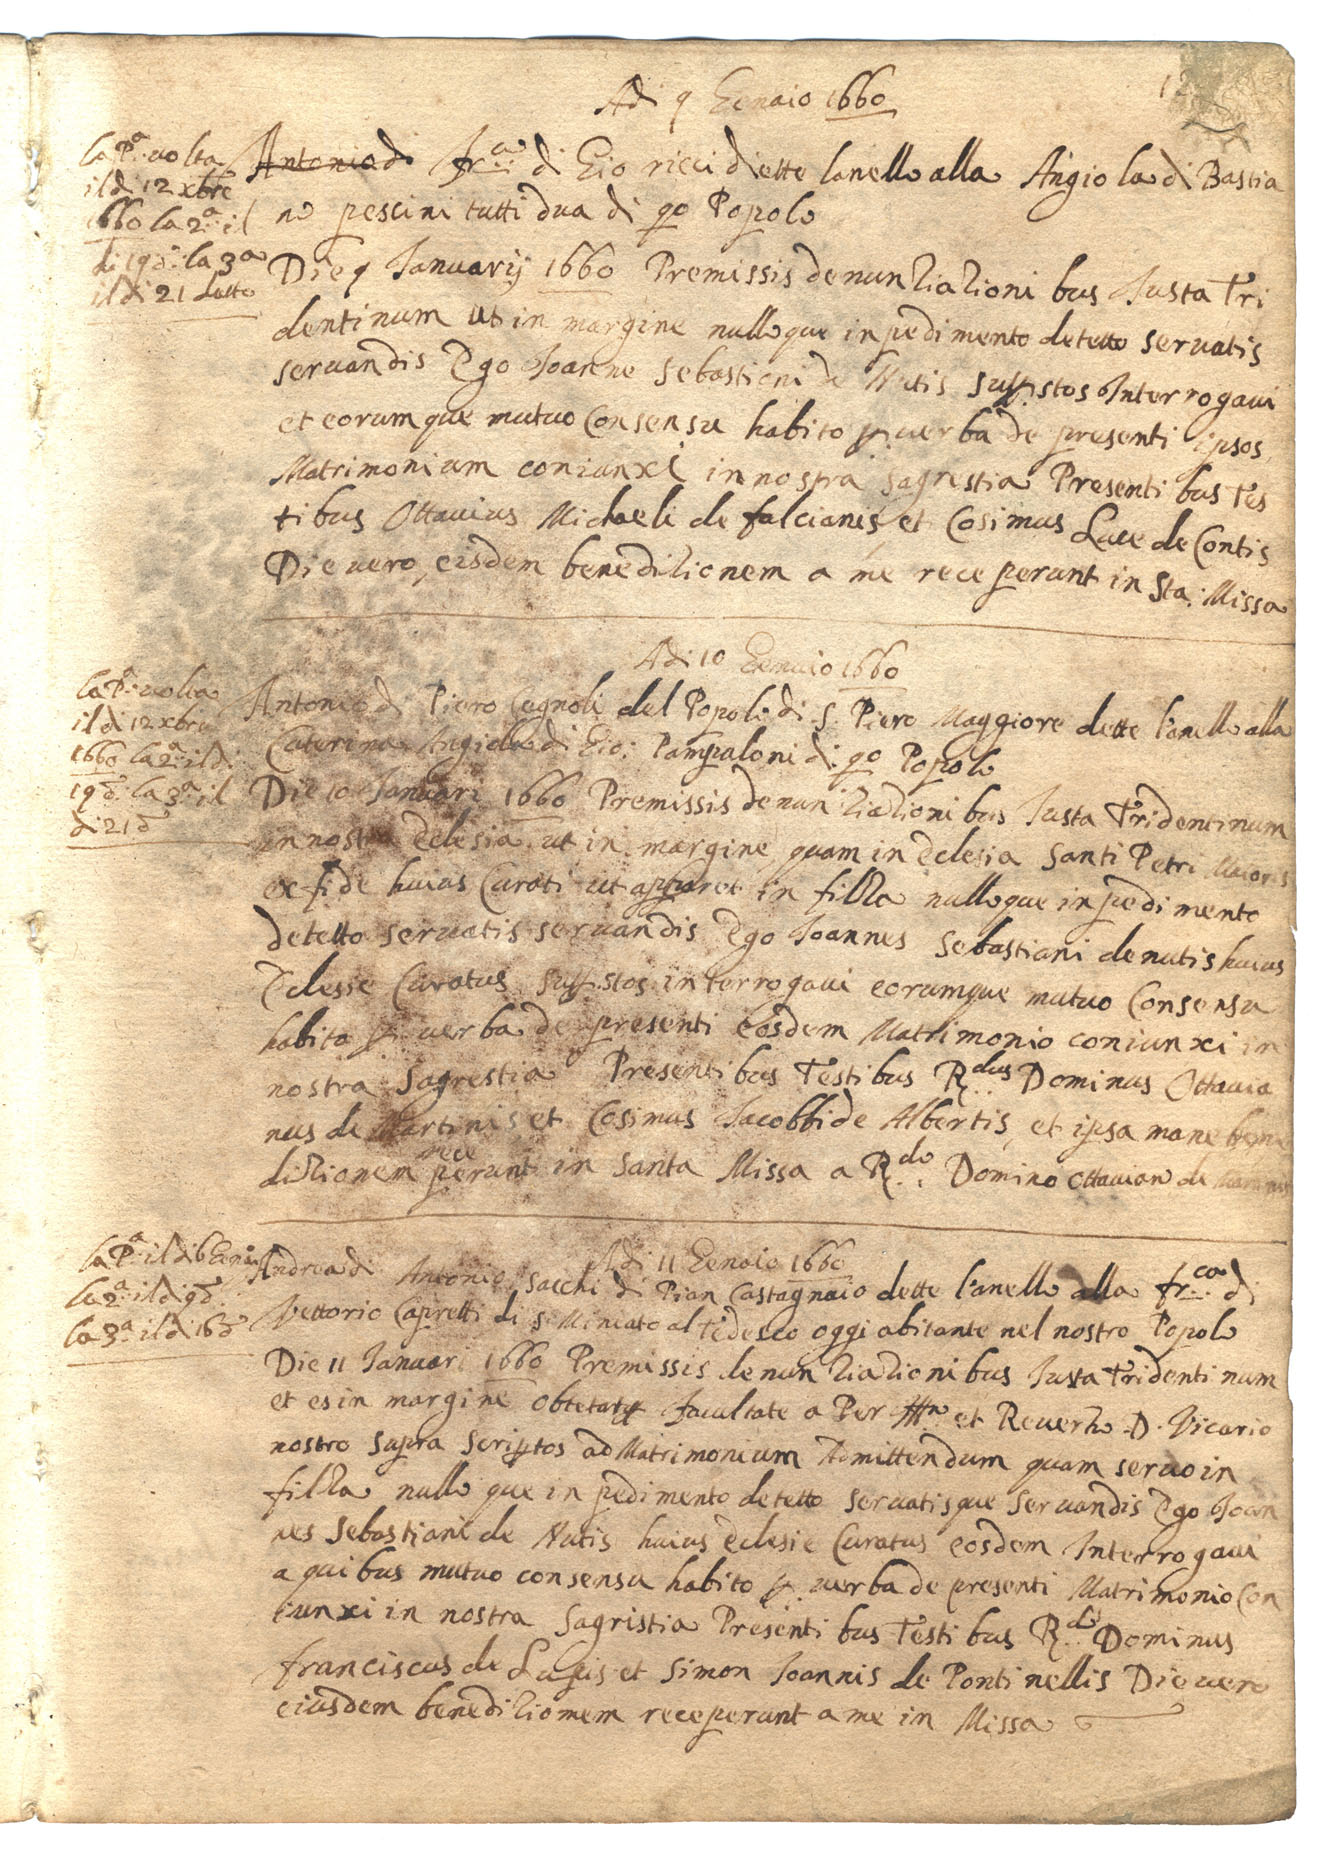 12
Adi 9 Genaio 1660
la Pa: uolta
il di 12 xbre
1660 la 2a: il
di 19 d: la 3a
il di 21 detto
Antonio di fr.co di Gio ricci dette lanello alla Angiola di Bastia
no pescini tutti dua di qo Popolo
Die 9 Januarij 1660 Premissis denuntiationi bus Justa Tri
dentinum ut in margine nulloque inpedimento detetto seruatis
seruandis Ego Joanne Sebastiani de Nutis supp.stos Interrogaui
et eorumque mutuo Consensu habito p. uerba de presenti ipsos
Matrimonium coniunxi in nostra sagrestia Presenti bus Tes
tibus Ottauius Michaeli de falcianis et Cosimus Luce de Contis
Die uero eisdem beneditionem a me receperunt in Sta: Missa
Adi 10 Genaio 1660
la Pa: uolta
il di 12 xbre
1660 la 2a: il di
19 d: la 3a il
di 21 d
Antonio di Piero Cegnoli del Popolo di S. Piero Maggiore dette lanello alla
Caterina Angiola di Gio: Pampaloni di qo Popolo
Die 10 Januari 1660 Premissis denuntiationi bus Justa Tridentinum
in nostra Eclesia ut in margine quam in Eclesia Santi Petri Maioris
ex fide huius Curati ut apparet in filza nulloque inpedimento
detetto seruatis seruandis Ego Joannes Sebastiani de nutis huius
Eclesse Curatus supp.stos interrogaui eorumque mutuo Consensu
habito p. uerba de presenti Eosdem Matrimonio coniunxi in
nostra Sagrestia Presentibus Testibus R.dus Dominus Ottauia
nus de Martinis et Cosimus Jacobbi de Albertis et ipsa mane bene
ditionem receperunt in Santa Missa a R.do: Domino Ottauian de Martinis
Adi 11 Genaio 1660
la Pa: il di 6 Genaio
la 2a: il di 9 d.
la 3a: il di 16 d
Andrea di Antonio Sacchi di Pian Castagnaio dette l'anello alla fr.ca di
Vettorio Capretti di S. Miniato al Tedesco oggi abitante nel nostro Popolo
Die 11 Januari 1660 Premissis denuntiationi bus Justa Tridentinum
et es in margine obtetata facultate a Per Ill. et Reuer. D. Vicario
nostro supra scriptos ad Matrimonium Admittendum quam seruo in
filza nullo que inpedimento detetto seruatisque seruandis Ego Joan
nes Sebastiani de Nutis huius Eclesie Curatus eosdem Interrogaui
a quibus mutuo consensu habito p. uerba de presenti Matrimonio Con
iunxi in nostra Sagristia Presenti bus Testi bus R.do Dominus
franciscus de Lupis et Simon Joannis de Pontinellis Die uero
eiusdem beneditiomem receperunt a me in Missa